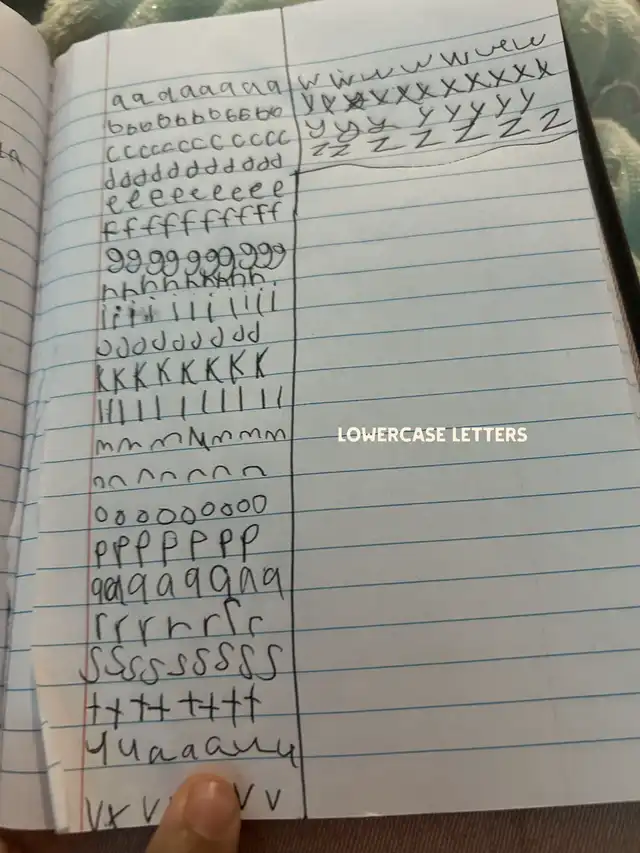 aaaaaaaaa
bbbbbbbbbbbb
cccccccccccc
ddddddddddd
eeeeeeeee
ffffffffff
ggggggggg
hhhhhhhhh
iiiiiiiiii
KKKKKKKK
llllllllll
mmmmmmmm
nnnnnnn
ooooooooo
PPPPPPPP
qqqqqqqq
rrrrrrrr
SSSSSSSSS
tttttttt
VxV
VV
wwwwwwww
xxxxxxxxxx
yyyyyyyy
zzzzzzz
LOWERCASE LETTERS